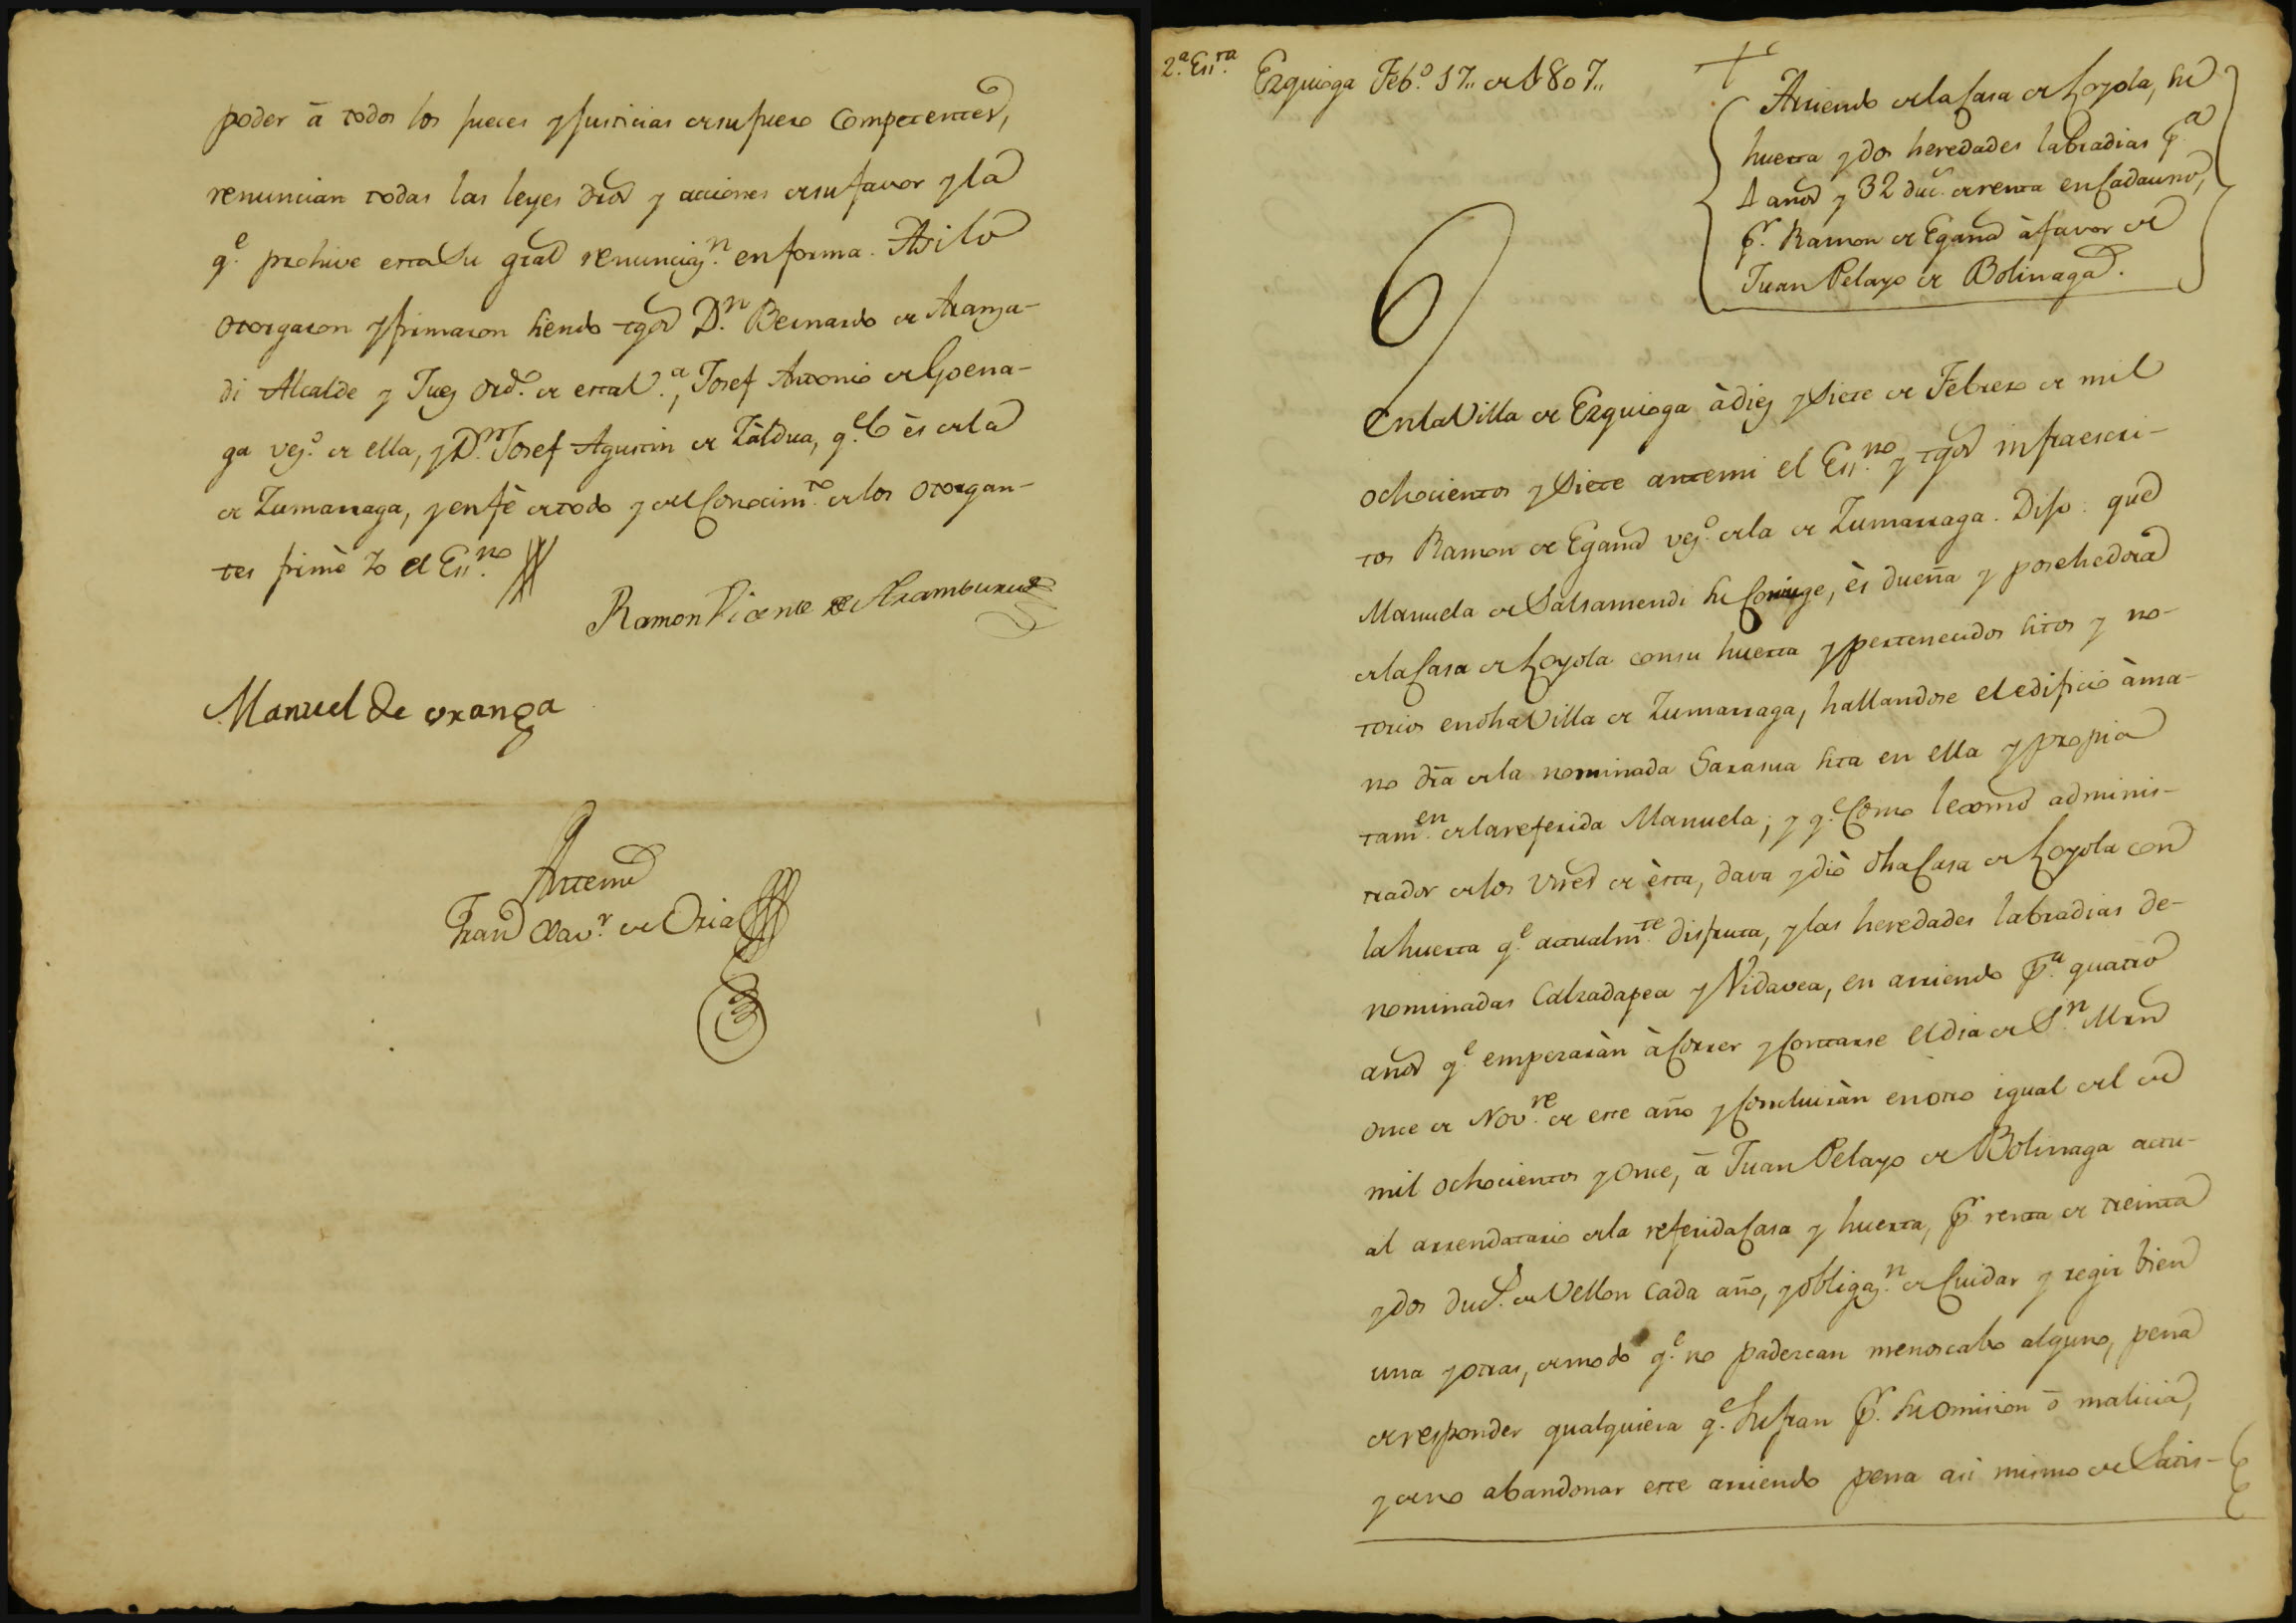 poder â todos los jueces y justicias de su fuero Competentes,
renuncian todas las leyes dros y acciones de su favor y la
q.e prohive esta Su gral renunciaz.n en forma. Asi lo
otorgaron y firmaron siendo tgos D.n Bernardo de Aranza-
di Alcalde y Juez Ord.o de esta V.a, Josef Antonio de Goena-
ga vez.o de ella, y D.n Josef Agustin de Zaldua, q.e lo ès de la
de Zumarraga, y en fè de todo y del Conocim.to de los otorgan-
tes firmè Yo el Ess.no
Ramon Vicente de Aramburu
Manuel de oranga
Antemi
Fran Xav.r de Oria
2.a Ess.ra
Ezquioga Feb.o 17,, de 1807,,
Arriendo de la Casa de Loyola, su
huerta y dos heredades labradias p.a
4 años y 32 duc.s de renta en Cada uno,
p.r Ramon de Egaña à favor de
Juan Pelayo de Bolinaga.
En la Villa de Ezquioga à diez y Siete de Febrero de mil
ochocientos y Siete antemi el Ess.no y tgos infraescri-
tos Ramon de Egaña vez.o de la de Zumarraga. Dijo: que
Manuela de Salsamendi su Coniuge, ès dueña y posehedora
de la Casa de Loyola con su huerta y pertenecidos sitos y no-
torios en dha Villa de Zumarraga, hallandose el edificio à ma-
no dra de la nominada Sarasua sita en ella y propia
tam.en de la referida Manuela; y q.e Como lexmo adminis-
trador de los vnes de èsta, dava y diò dha Casa de Loyola con
la huerta q.e actualm.te disfruta, y las heredades labradias de-
nominadas Calzadapea y Vidavea, en arriendo p.a quatro
años q.e empezaràn à Correr y Contarse el dia de S.n Mrn
once de Nov.re de este año y Concluiràn en otro igual del de
mil ochocientos y Once, â Juan Pelayo de Bolinaga actu-
al arrendatario de la referida Casa y huerta, p.r renta de treinta
y dos duc.s de Vellon Cada año, y obligaz.n de Cuidar y regir bien
una y otras, de modo q.e no padezcan menoscabo alguno, pena
de responder qualquiera q.e Sufran p.r su omision ô malicia,
y de no abandonar este arriendo pena asi mismo de Satis-